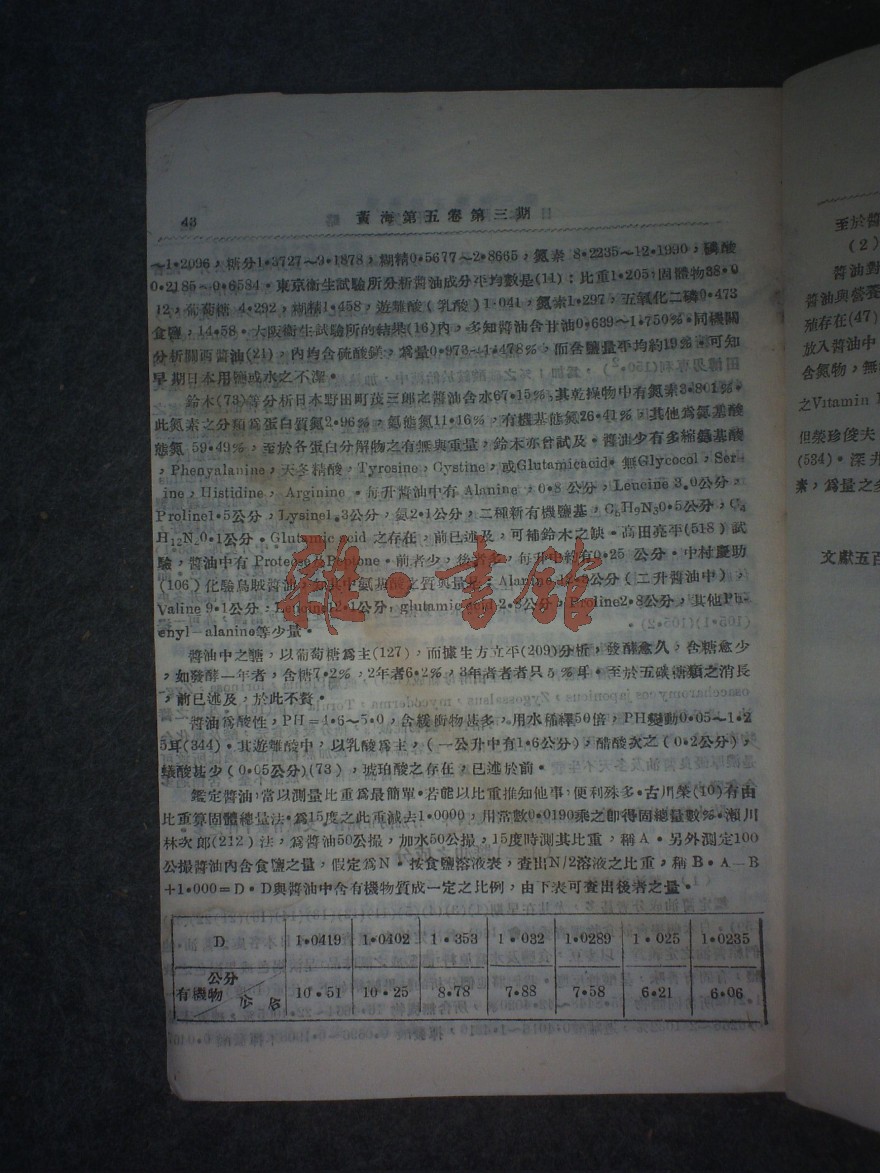 43
黃海第五卷第三期
～1•2096，糖分1•3727～9•1878，糊精0•5677～2•8665，氮素 8•2235～12•1930，磷酸
0•2185～0•6584•東京衞生試驗所分析醬油成分平均數是(11)：比重1•205，固體物38•0
12，葡萄糖 4•292，糊精1•458，遊離酸（乳酸）1•041，氮素1•297，五氧化二磷0•473
食鹽，14•58•大阪衞生試驗所的結果(16)內，多知醬油含甘油0•639～1•750％•同機關
分析關西醬油(21)，內均含硫酸鎂，爲量0•973～1•478％，而含鹽量平均約19％•可知
早期日本用鹽或水之不潔•
鈴木(73)等分析日本野田町茂三郎之醬油含水67•15％，其乾燥物中有氮素3•801％•
此氮素之分類爲蛋白質氮2•96％，氨態氮11•16％，有機基態氮26•41％，其他爲氨基酸
態氮 59•49％，至於各蛋白分解物之有無與重量，鈴木亦曾試及•醬油少有多縮氨基酸
，Phenyalanine，天冬精酸，Tyrosine，Cystine，或Glutamicacid•無Glycocol，Ser-
ine，Histidine， Arginine •每升醬油中有 Alanine，0•8 公分，Leucine 3.0公分，
Proline1•5公分，Lysine1.3公分，氨2•1公分，二種新有機鹽基，C₆H₉N₃0•5公分，C₄
H₁₂N₂0•1公分•Glutamic acid 之存在，前已述及，可補鈴木之缺•高田亮平(518) 試
驗，醬油中有 Proteose及Peptone•前者少，後者多，每升中約有0•25 公分•中村慶助
(106) 化驗烏賊醬油，知其中氨基酸之質與量爲，Alanine 公分（二升醬油中），
Valine 9•1公分，Leucine12•1公分，glutamic acid 2•8公分，Proline2•8公分，其他Ph-
enyl—alanine等少量•
醬油中之醣，以葡萄糖爲主(127)，而據生方立平(209)分析，發酵愈久，含糖愈少
，如發酵一年者，含糖7•2％，2年者6•2％，3年者者者只5％耳•至於五碳糖類之消長
，前已述及，於此不贅•
醬油爲酸性，PH＝4•6～5•0，含緩衝物甚多，用水稀釋50倍，PH變動0•05～1•2
5耳(344)•其遊離酸中，以乳酸爲主，（一公升中有1•6公分），醋酸次之（0•2公分），
蟻酸甚少（0•05公分)(73)，琥珀酸之存在，已述於前•
鑑定醬油，當以測量比重爲最簡單•若能以比重推知他事，便利殊多•古川榮(10)有由
比重算固體總量法•爲15度之此重減去1•0000，用常數0•0190乘之卽得固總量數％•瀨川
林次郎(212) 法，爲醬油50公撮，加水50公撮，15度時測其比重，稱A•另外測定100
公撮醬油內含食鹽之量，假定爲N•按食鹽溶液表，查出N/2溶液之比重，稱B•A—B
+1•000＝D•D與醬油中含有機物質成一定之比例，由下表可查出後者之量•
D 1•0419 1•0402 1•353 1•032 1•0289 1•025 1•0235
公分
有機物 公合 10•51 10•25 8•78 7•88 7•58 6•21 6•06
雜•書館
至於醬
(2)
醬油對
醬油與營養
殖存在(47)
放入醬油中
含氮物，無
之Vitamin
但蔡珍俊夫
(534)•深井
素，爲量之多
文獻五百